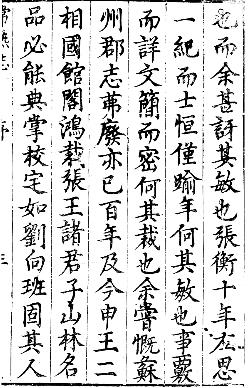 也而余甚訝其敏也張衡十年左思
一紀而士恒僅踰年何其敏也事覈
而詳文簡而密何其裁也余嘗慨蘇
州郡志弗廢亦已百年及今申王二
相國館閣鴻裁張王諸君子山林名
品必能典掌校定如劉向班固其人
序
三